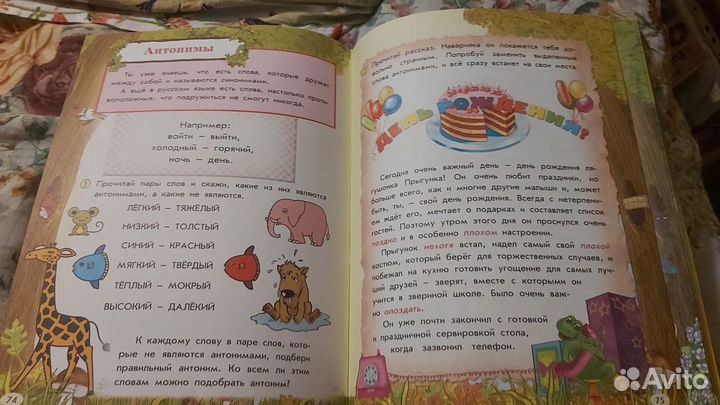 Антонимы
Ты уже знаешь, что есть слова, которые дружат
между собой и называются синонимами.
А ещё в русском языке есть слова, настолько проти-
воположные, что подружиться не смогут никогда.
Например:
войти – выйти,
холодный – горячий,
ночь – день.
1 Прочитай пары слов и скажи, какие из них являются
антонимами, а какие не являются.
ЛЁГКИЙ – ТЯЖЁЛЫЙ
НИЗКИЙ – ТОЛСТЫЙ
СИНИЙ – КРАСНЫЙ
МЯГКИЙ – ТВЁРДЫЙ
ТЁПЛЫЙ – МОКРЫЙ
ВЫСОКИЙ – ДАЛЁКИЙ
К каждому слову в паре слов, кото-
рые не являются антонимами, подбери
правильный антоним. Ко всем ли этим
словам можно подобрать антоним!
74
Прочитай рассказ. Наверняка он покажется тебе до-
вольно странным. Попробуй заменить выделенные
слова антонимами, и всё сразу встанет на свои места.
ДЕНЬ РОЖДЕНИЯ!
Сегодня очень важный день – день рождения ля-
гушонка Прыгунка! Он очень любит праздники, но
больше всего, как и многие другие малыши и, может
быть, ты, – свой день рождения. Всегда с нетерпени-
ем ждёт его, мечтает о подарках и составляет список
гостей. Поэтому утром этого дня он проснулся очень
поздно и в особенно плохом настроении.
Прыгунок нехотя встал, надел самый свой плохой
костюм, который берёг для торжественных случаев, и
побежал на кухню готовить угощение для самых луч-
ших друзей – зверят, вместе с которыми он
учится в звериной школе. Было очень важ-
но опоздать.
Он уже почти закончил с готовкой
и праздничной сервировкой стола,
когда зазвонил телефон.
75
Avito